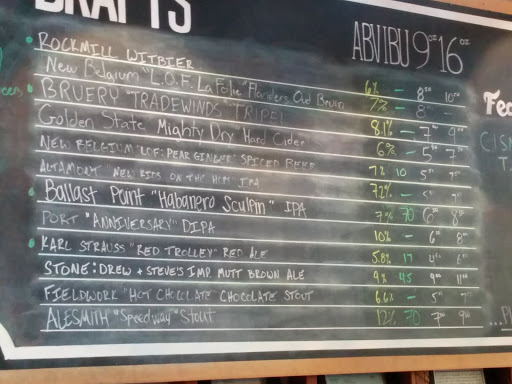 DRAFTS
ABV IBU 9oz 16oz
ROCKMILL WITBIER 6% - 8 10
New Belgium "L.O.F. La Folie" Flanders Oud Bruin 7% - 8
BRUERY "TRADEWINDS" TRIPEL 8.1% - 7 9
Golden State Mighty Dry Hard Cider 6% - 5 7
NEW BELGIUM "LOF: PEAR GINGER" SPICED BEER 7% 10 5
ALTAMONT "NEW KIDS ON THE HOPS" IPA 7.2% - 5 7
Ballast Point "Habanero Sculpin" IPA 7% 70 6 8
PORT "ANNIVERSARY" DIPA 10% - 6 8
KARL STRAUSS "RED TROLLEY" RED ALE 5.8% 17 4 6
STONE: DREW + STEVE'S IMP. MUTT BROWN ALE 9% 45 9 11
FIELDWORK "HOT CHOCOLATE" CHOCOLATE STOUT 6.6% - 5
ALESMITH "Speedway" Stout 12% 70 7 9